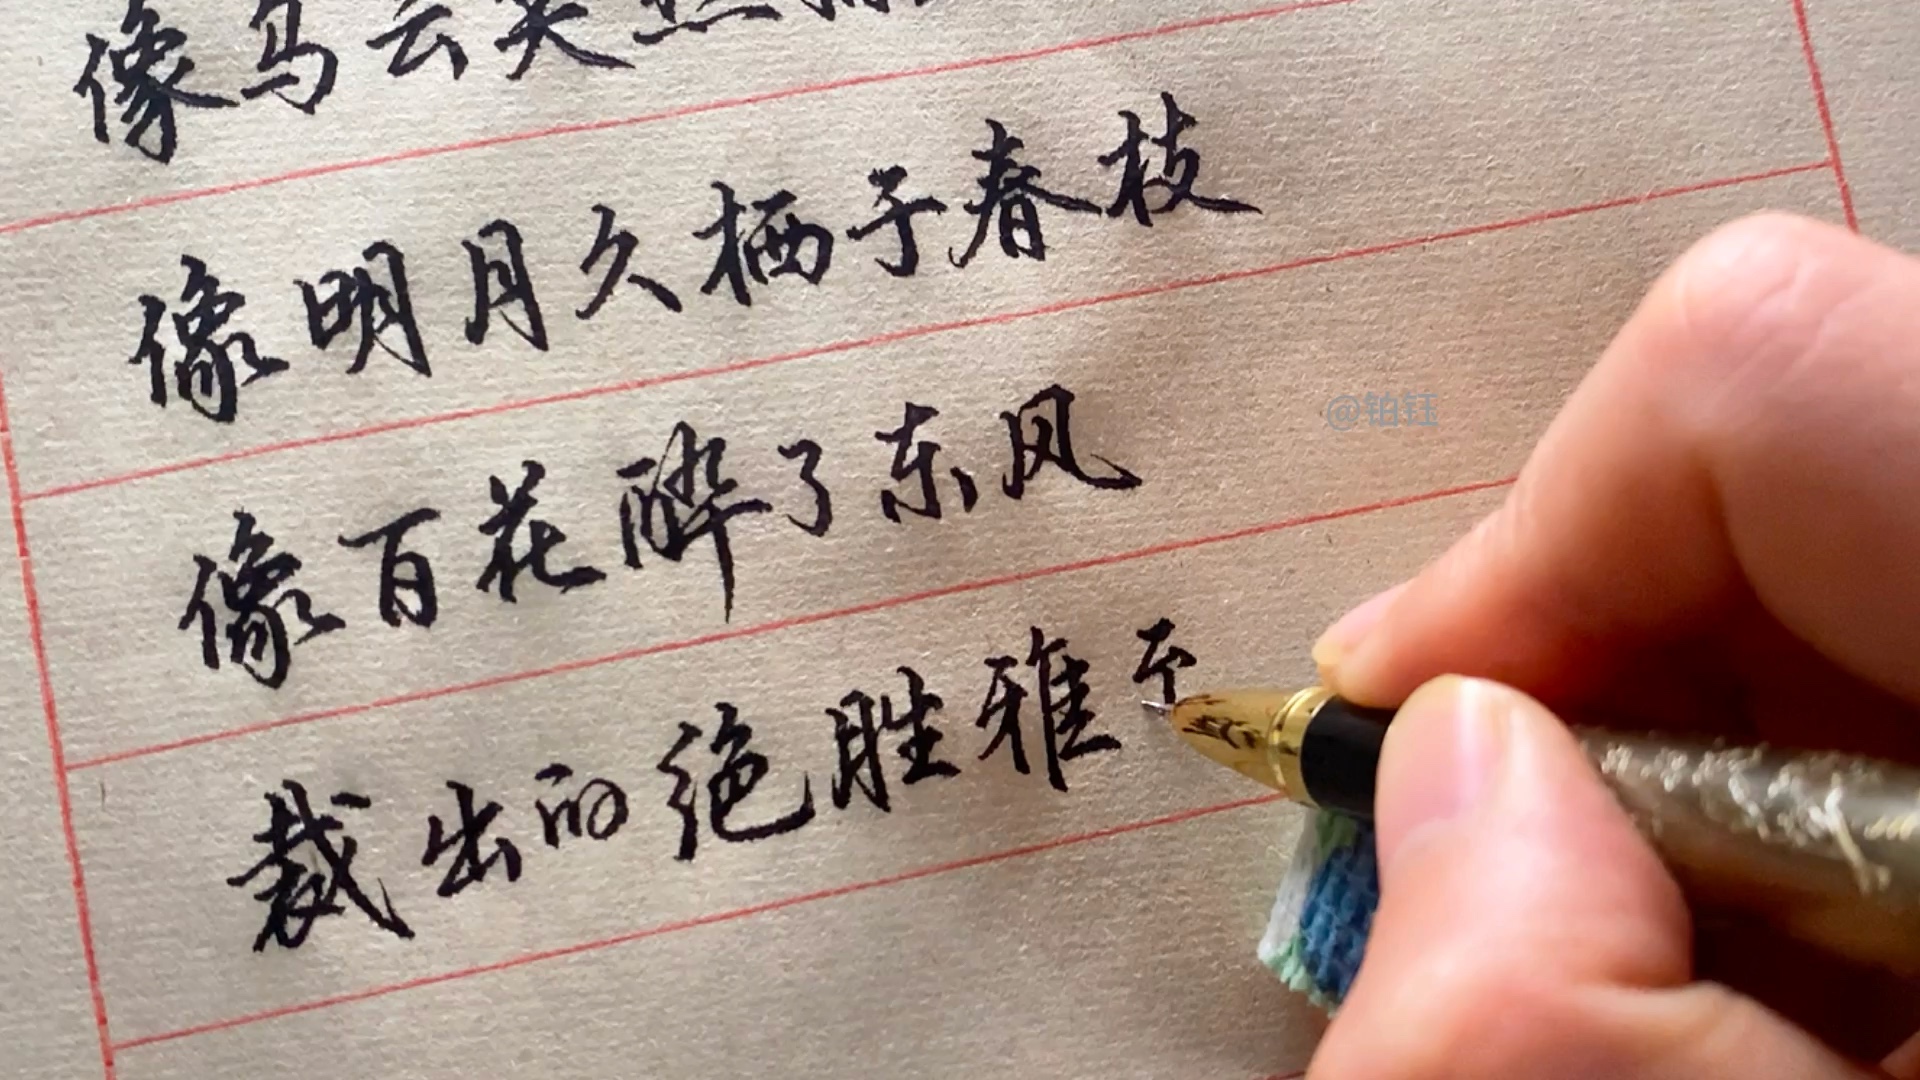 像乌云突然
像明月久栖于春枝
像百花醉了东风
裁出的绝胜雅
@铂钰